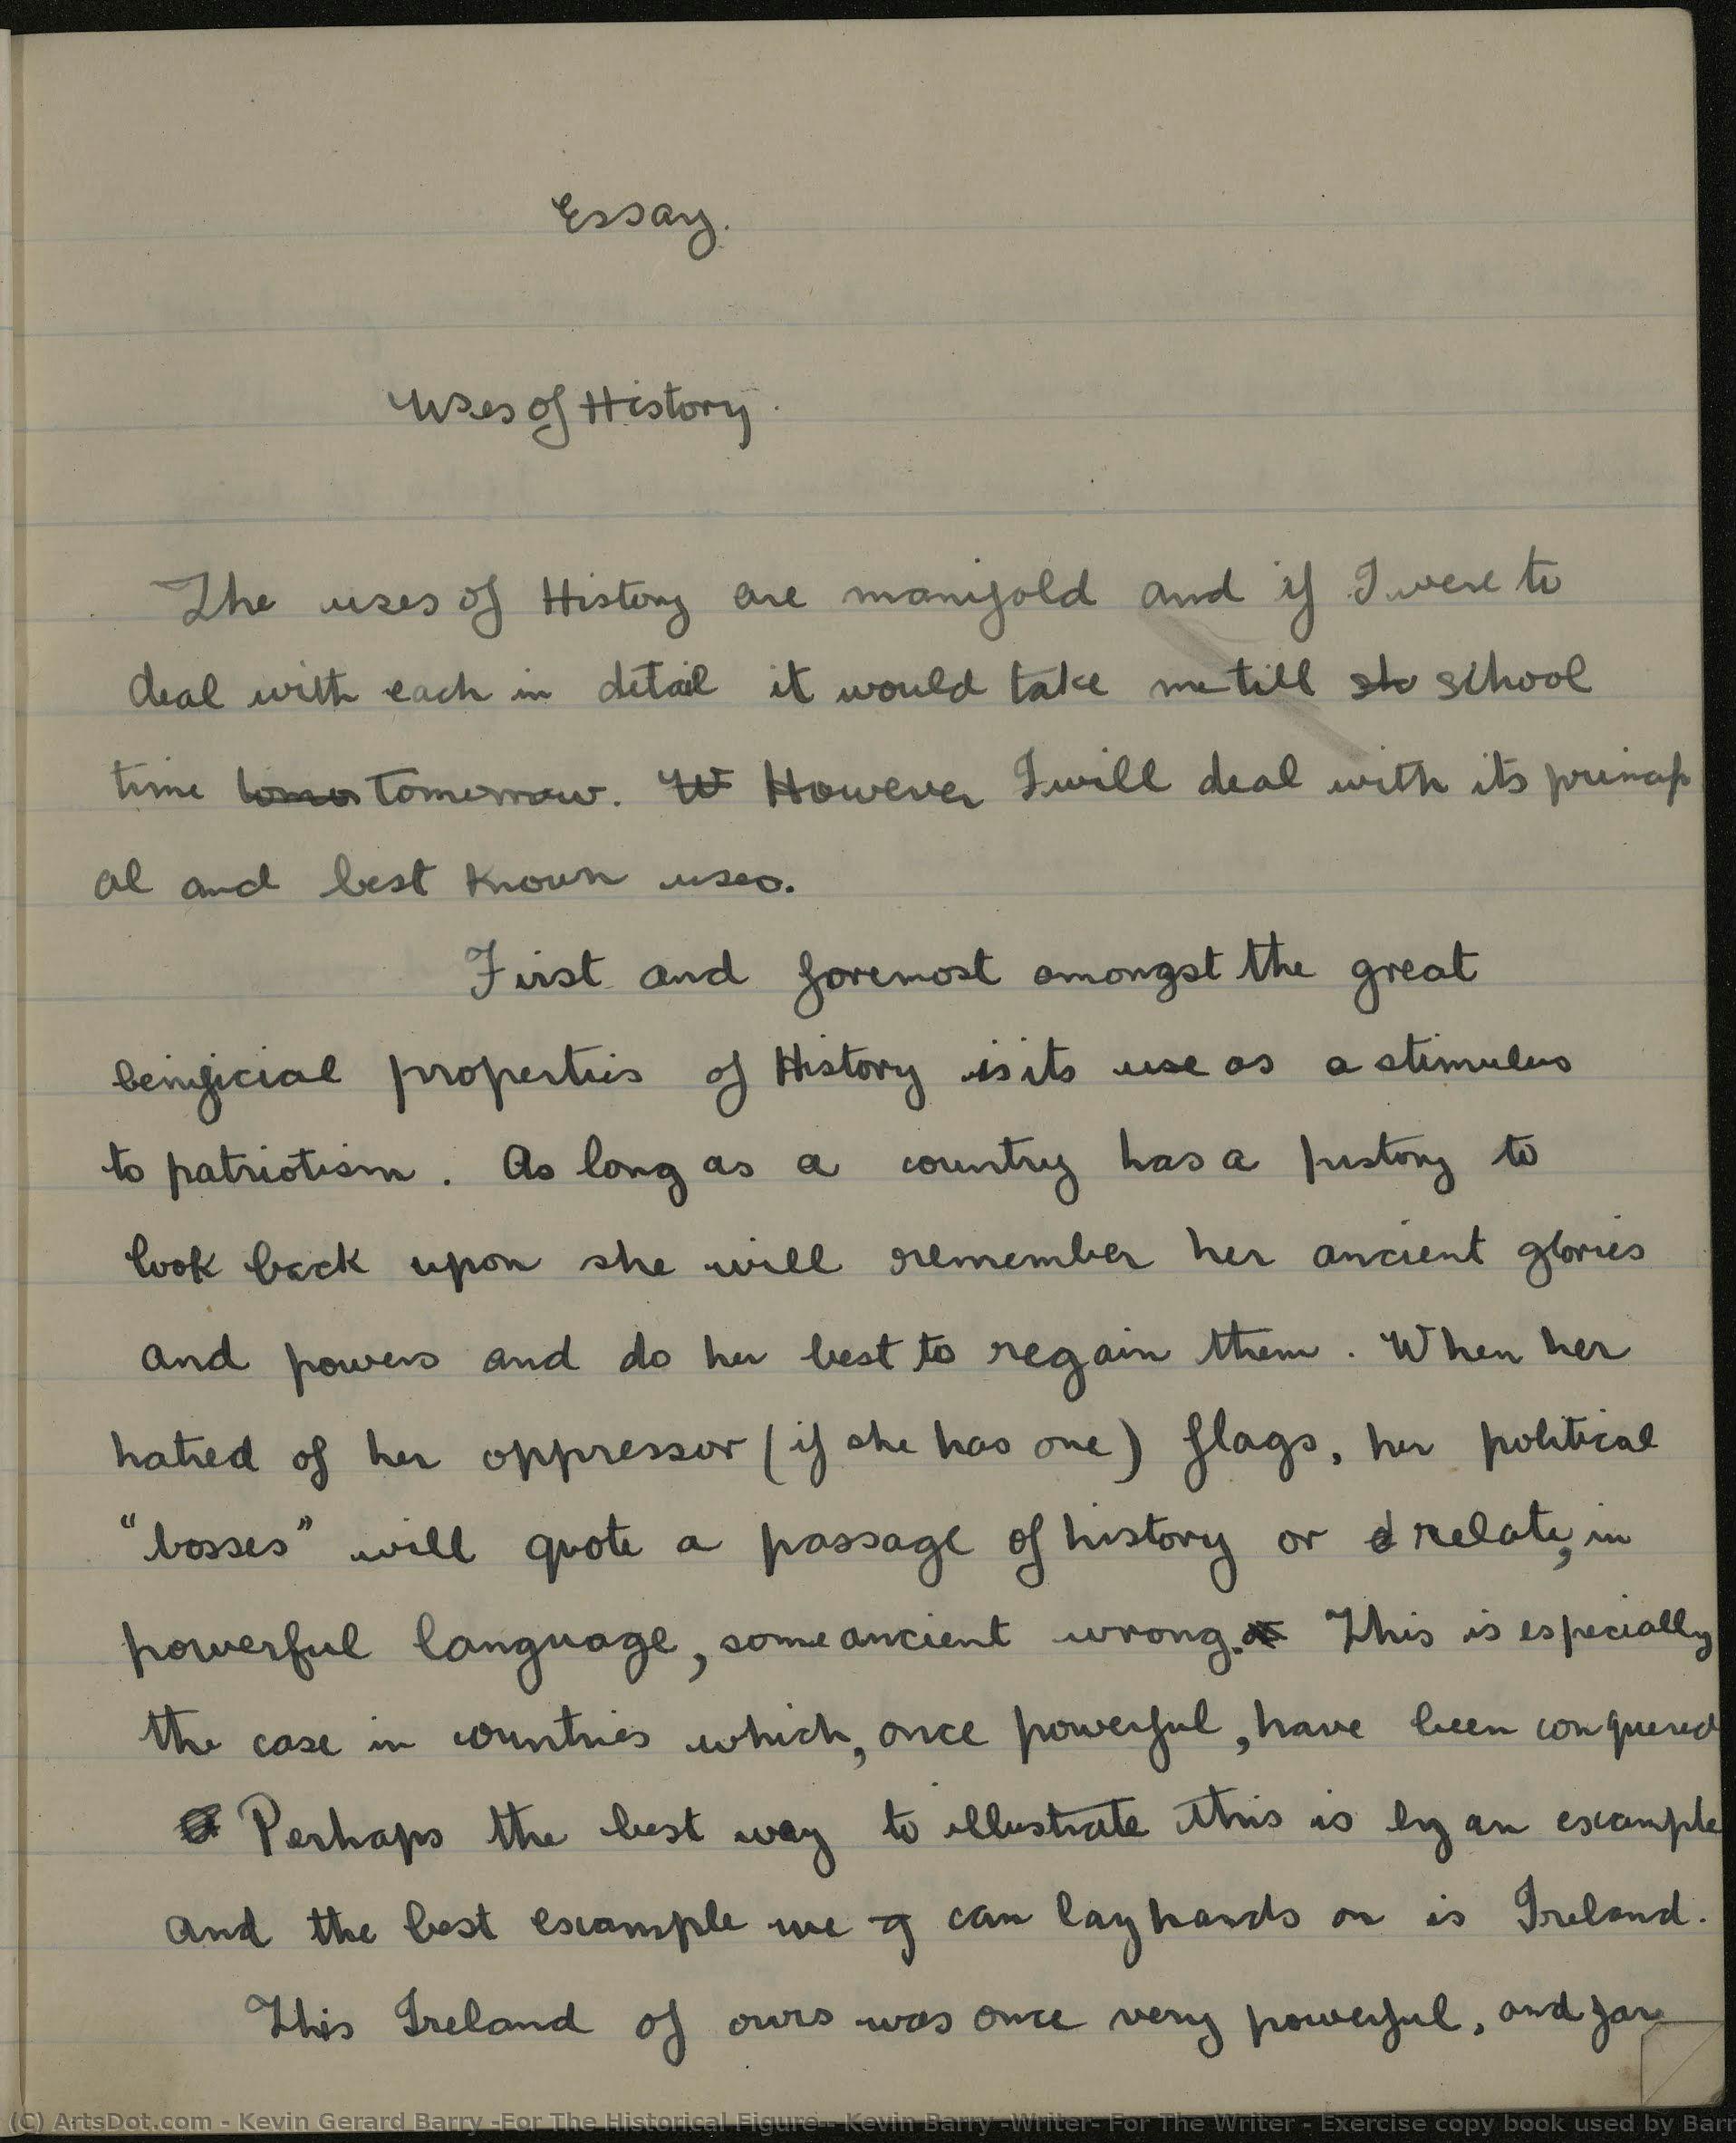 Essay.
Uses of History.
The uses of History are manifold and if I were to
deal with each in detail it would take me till sh school
time tomo tomorrow. W However I will deal with its princip
al and best known uses.
First and foremost amongst the great
benificial properties of History is its use as a stimulus
to patriotism. As long as a country has a history to
look back upon she will remember her ancient glories
and powers and do her best to regain them. When her
hatred of her oppressor (if she has one) flags, her political
"bosses" will quote a passage of history or relate, in
powerful language, some ancient wrong. This is especially
the case in countries which, once powerful, have been conquered
Perhaps the best way to illustrate this is by an example
and the best example we can lay hands on is Ireland.
This Ireland of ours was once very powerful, and far
(C) ArtsDot.com - Kevin Gerard Barry -For The Historical Figure-- Kevin Barry -Writer- For The Writer - Exercise copy book used by Barr